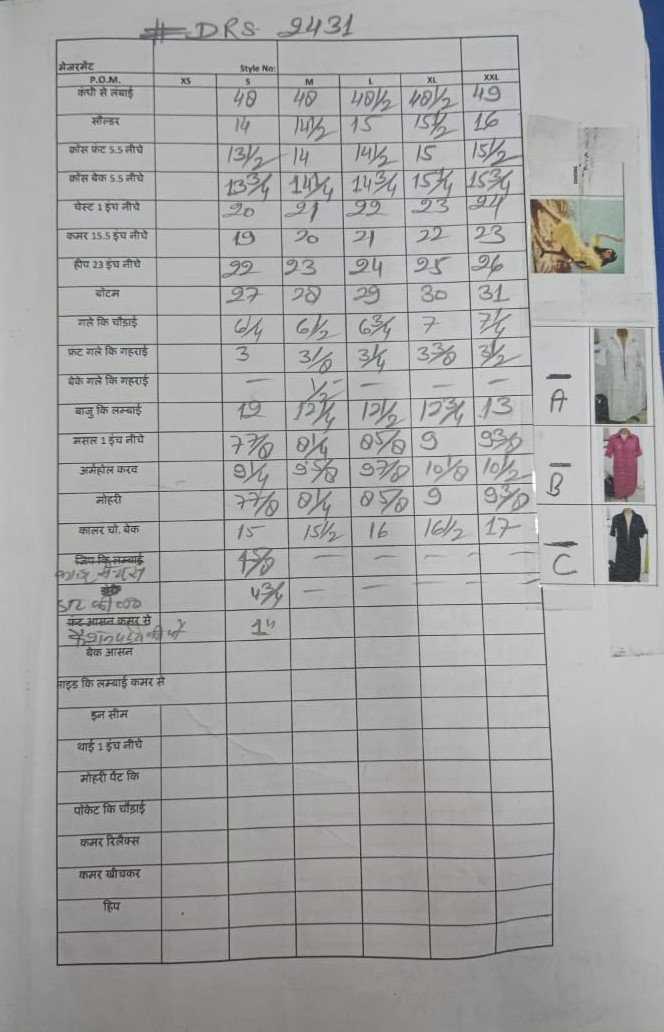 # DRS 2431
मेजरमेंट Style No:
P.O.M. XS S M L XL XXL
कंधी से लंबाई 48 48 48 1/2 48 1/2 49
सौल्डर 14 14 1/2 15 15 1/2 16
क्रोस फ्रंट 5.5 नीचे 13 1/2 14 14 1/2 15 15 1/2
क्रोस बेक 5.5 नीचे 13 3/4 14 1/4 14 3/4 15 1/4 15 3/4
चेस्ट 1 इंच नीचे 20 21 22 23 24
कमर 15.5 इंच नीचे 19 20 21 22 23
हीप 23 इंच नीचे 22 23 24 25 26
बोटम 27 28 29 30 31
गले कि चौडाई 6 1/4 6 1/2 6 3/4 7 7 1/4
फ्रंट गले कि गहराई 3 3 1/8 3 1/4 3 3/8 3 1/2
बेके गले कि गहराई — — — —
बाजु कि लम्बाई 12 12 1/4 12 1/2 12 3/4 13
मसल 1 इंच नीचे 7 7/8 8 1/4 8 5/8 9 9 3/8
अर्महोल करव 9 1/4 9 5/8 9 7/8 10 1/8 10 1/2
मोहरी 7 7/8 8 1/4 8 5/8 9 9 3/8
कालर चो. बेक 15 15 1/2 16 16 1/2 17
जिप कि लम्बाई — — — —
4 3/4 — — — —
फ्रंट आसन कमर से 14
बेक आसन
साइड कि लम्बाई कमर से
इन सीम
थाई 1 इंच नीचे
मोहरी पेंट कि
पॉकेट कि चौड़ाई
कमर रिलैक्स
कमर खीचकर
हिप
A
B
C